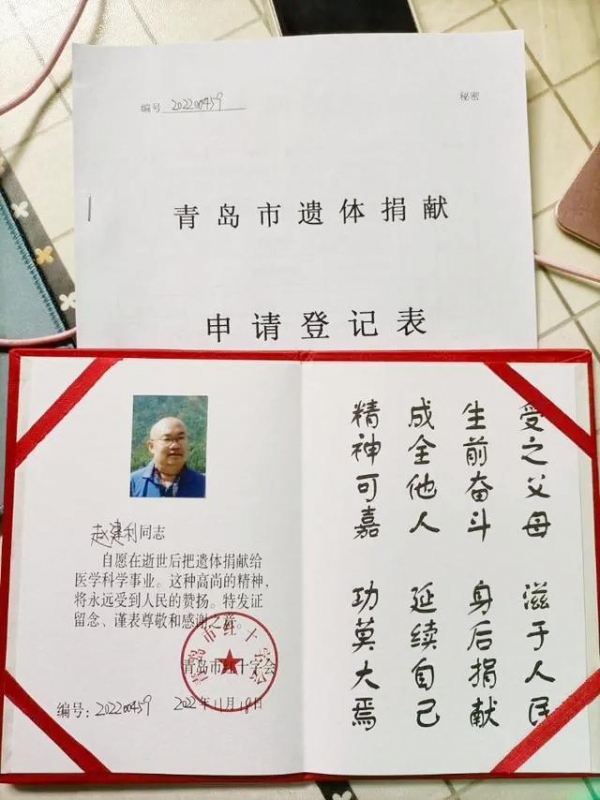 编号 202200459
秘密
青岛市遗体捐献
申请登记表
赵建利同志
自愿在逝世后把遗体捐献给
医学科学事业。这种高尚的精神,
将永远受到人民的赞扬。特发证
留念、谨表尊敬和感谢之意。
青岛市红十字会
青岛市红十字会
编号: 202200459 2022年11月18日
受之父母 滋于人民
生前奋斗 身后捐献
成全他人 延续自己
精神可嘉 功莫大焉